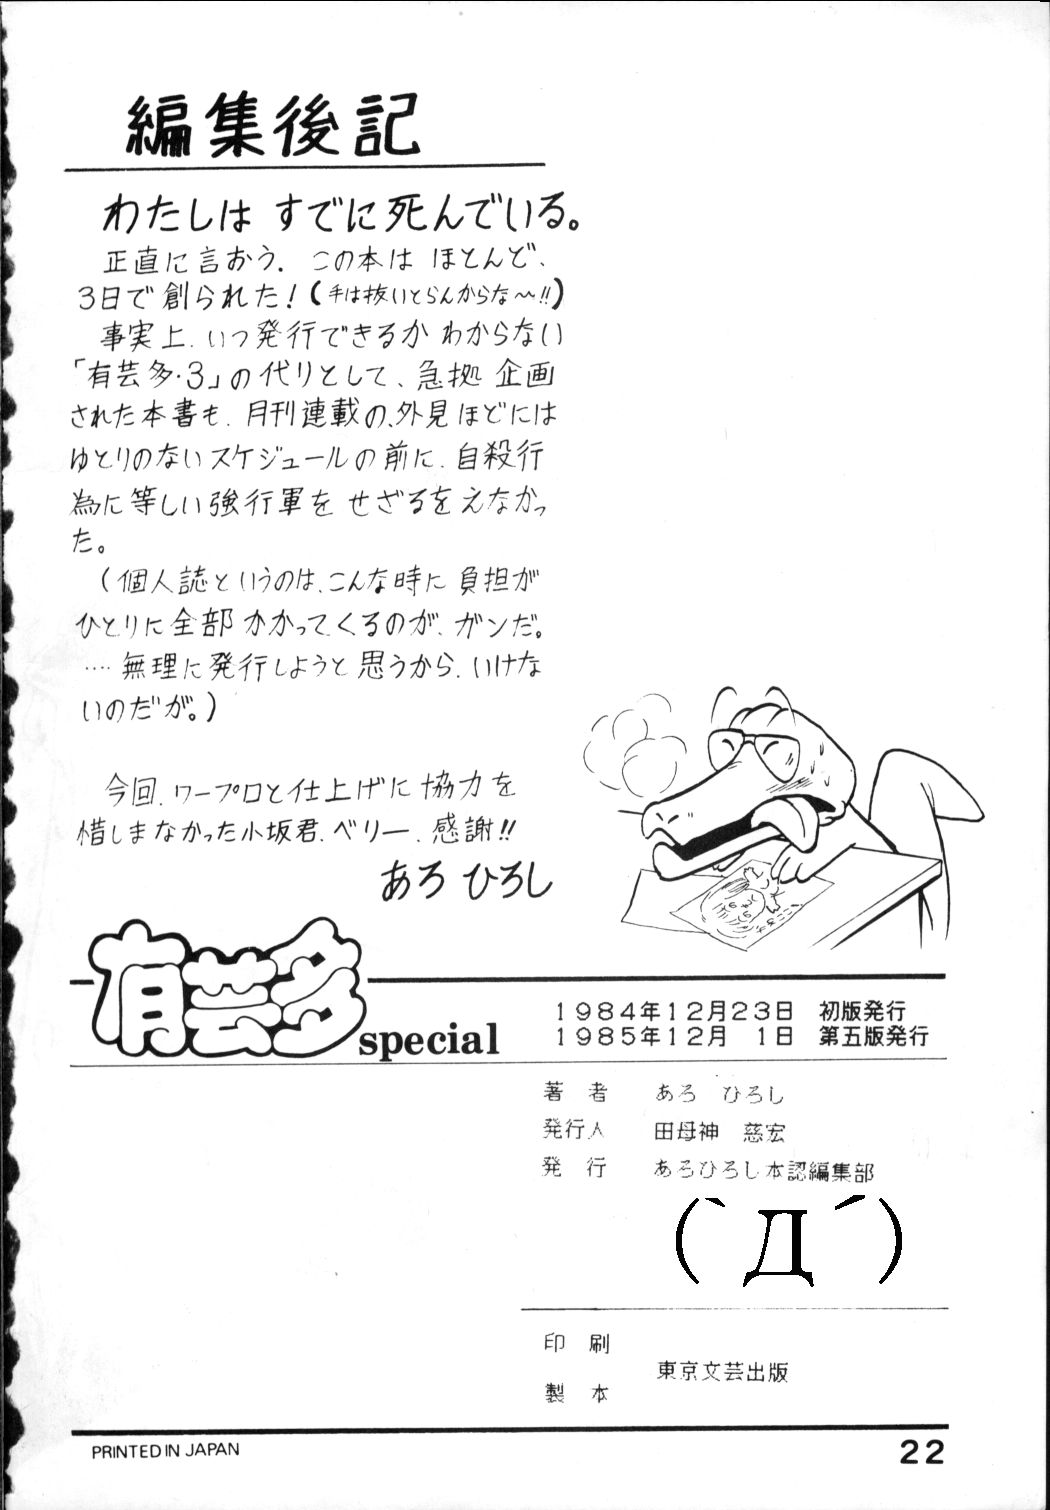 編集後記
わたしは すでに死んでいる。
正直に言おう. この本は ほとんど、
3日で創られた!(手は抜いとらんからな〜!!)
事実上、いつ発行できるか わからない
「有芸多・3」の代りとして、急拠 企画
された本書も、月刊連載の、外見ほどには
ゆとりのないスケジュールの前に、自殺行
為に等しい強行軍を せざるをえなかっ
た。
(個人誌というのは、こんな時に 負担が
ひとりに全部かかってくるのが、ガンだ。
‥‥無理に発行しようと思うから、いけな
いのだが。)
今回、ワープロと仕上げに 協力を
惜しまなかった小坂君、ベリー、感謝!!
あろ ひろし
有芸多special
1984年12月23日 初版発行
1985年12月 1日 第五版発行
著 者 あろ ひろし
発行人 田母神 慈宏
発 行 あろひろし本認編集部
(`Д´)
印 刷
東京文芸出版
製 本
PRINTED IN JAPAN
22